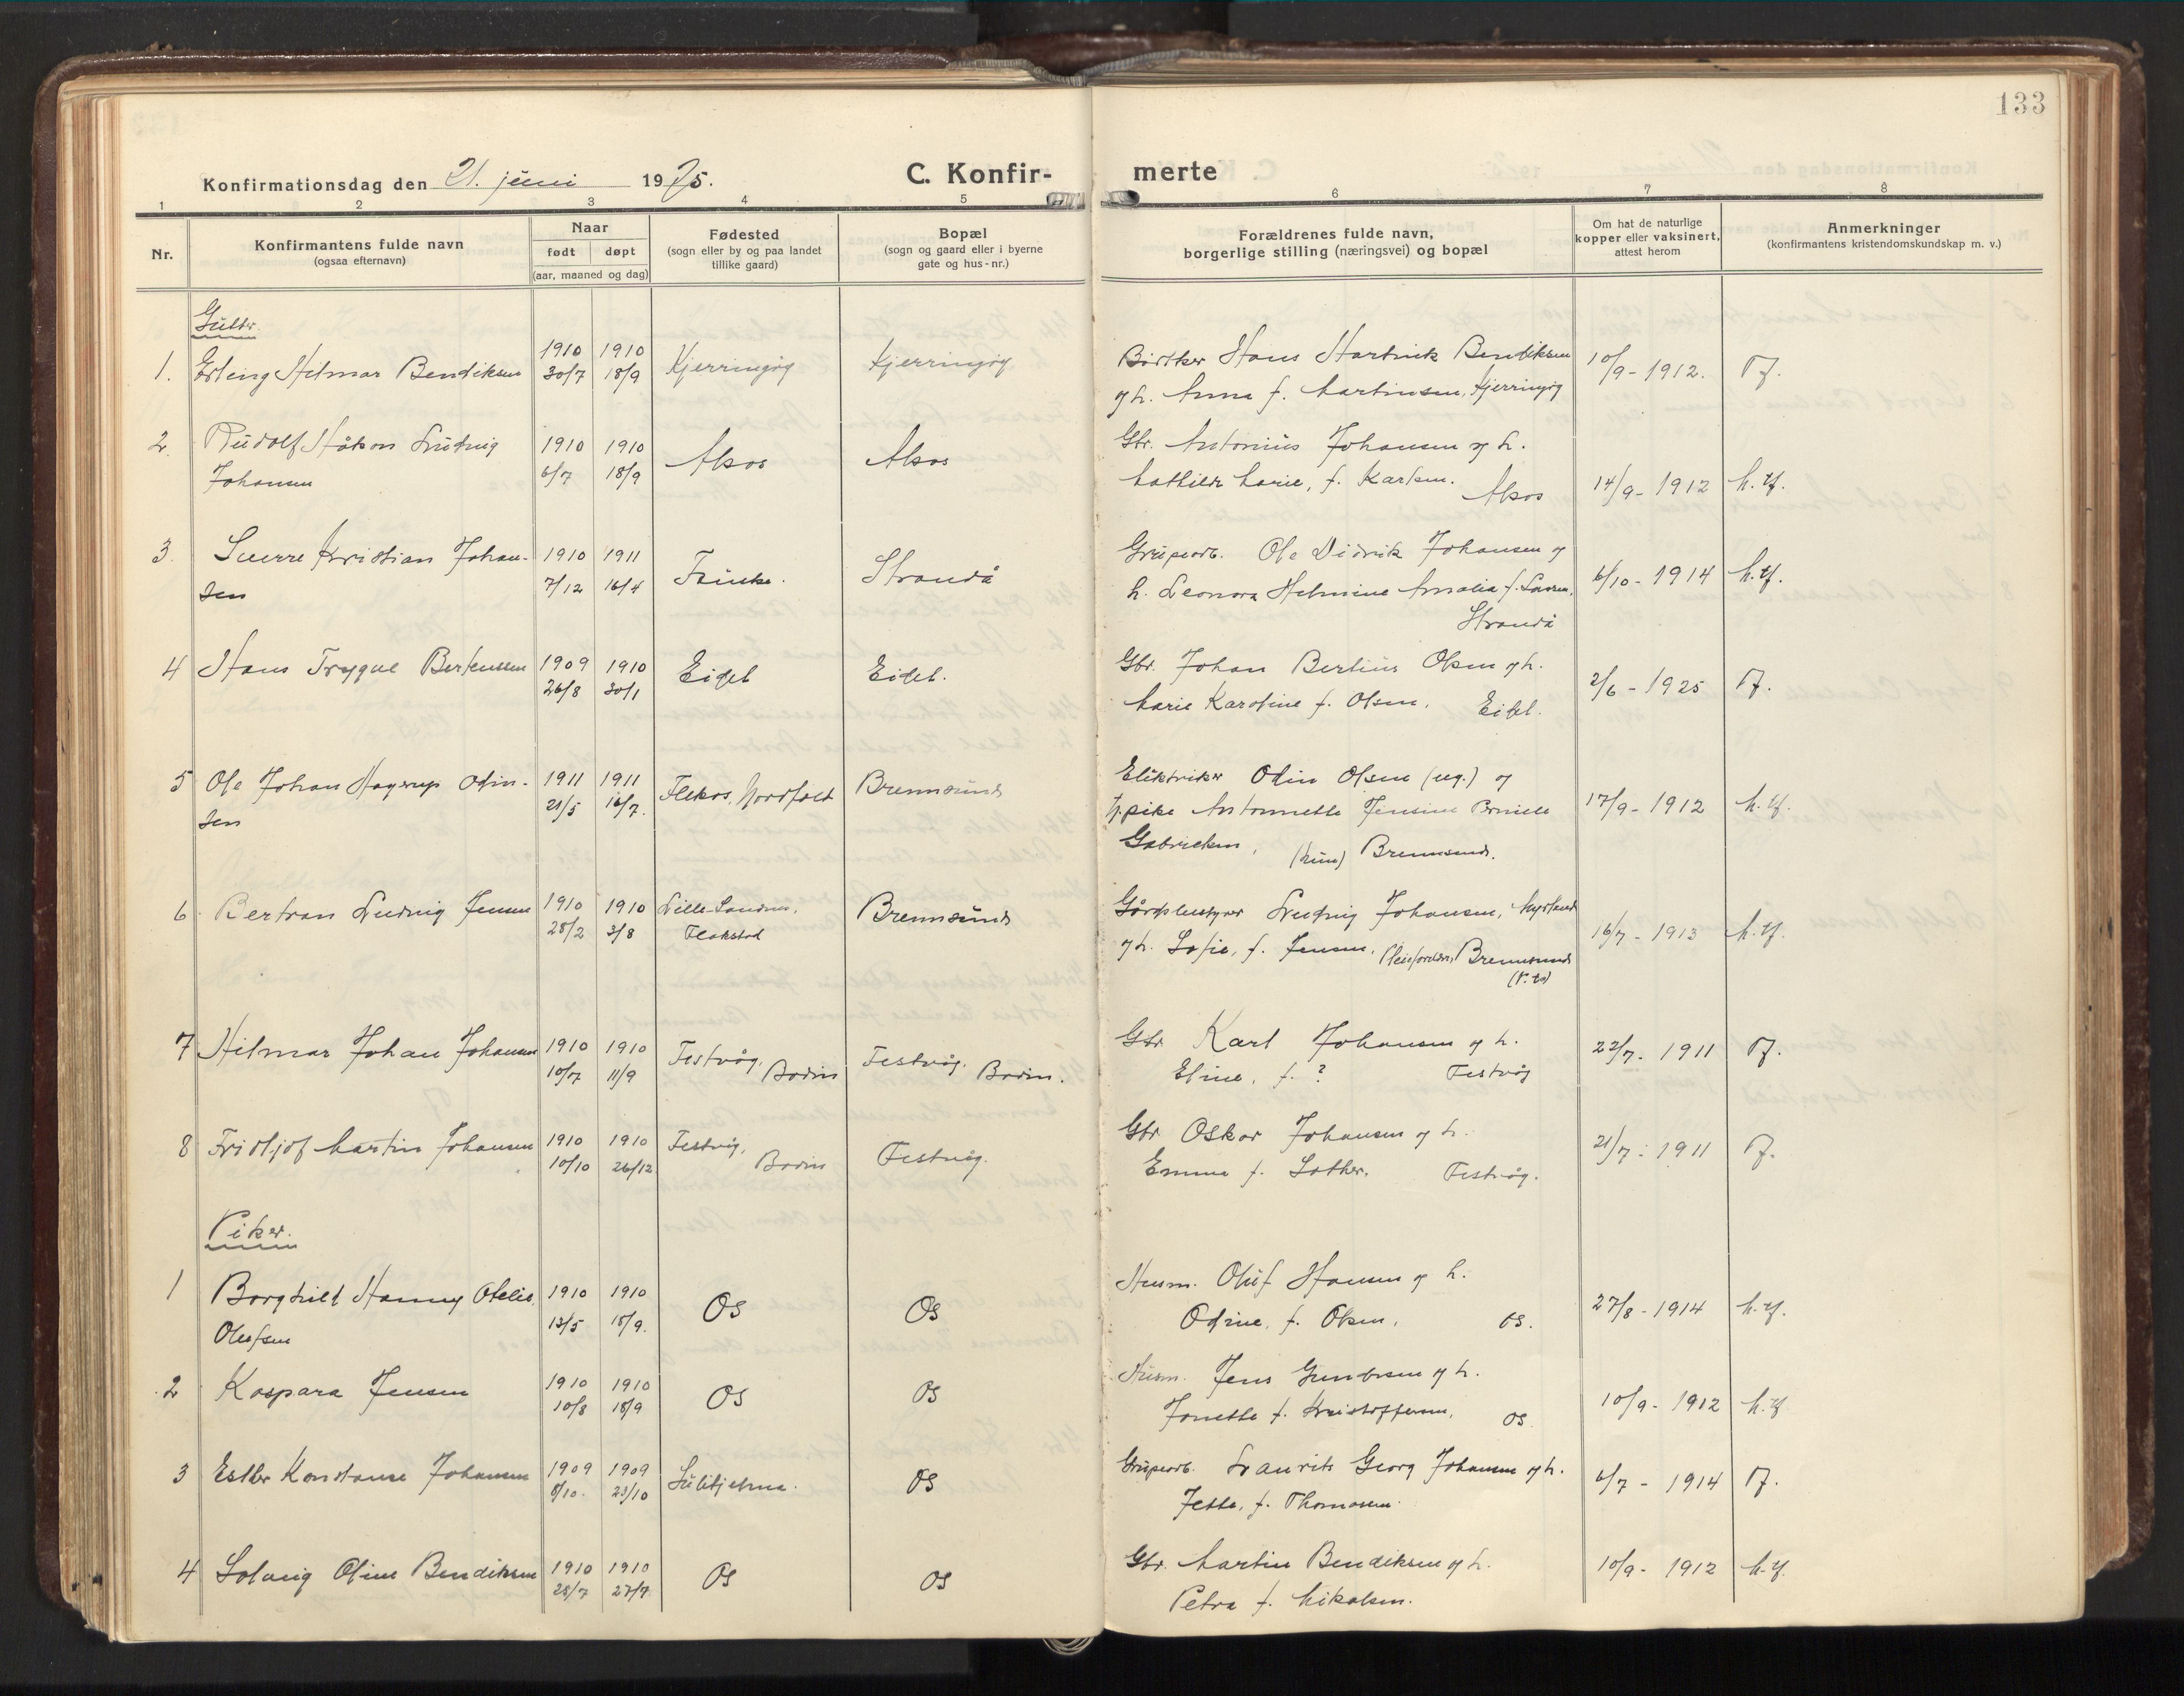 133
Konfirmationsdag den 21. juni 1925.
C. Konfirmerte
1 2 3 4 5 6 7 8
Nr.
Konfirmantens fulde navn
(ogsaa efternavn)
Naar
født døpt
(aar, maaned og dag)
Fødested
(sogn eller by og paa landet
tillike gaard)
Bopæl
(sogn og gaard eller i byerne
gate og hus-nr.)
Forældrenes fulde navn,
borgerlige stilling (næringsvei) og bopæl
Om hat de naturlige
kopper eller vaksinert,
attest herom
Anmerkninger
(konfirmantens kristendomskundskap m. v.)
Gutter.
1. Erling Hilmar Bendiksen 1910 30/7 1910 18/9 Kjerringøy Kjerringøy
Bødker Hans Hartvik Bendiksen
og h. Anna f. Martinsen, Kjerringøy
10/9 - 1912. T.f.
2. Rudolf Håkon Ludvig
Johansen
1910 6/7 1910 18/9 Alsos Alsos
Gbr. Antonius Johansen og h.
Mathilde Marie, f. Karlsen. Alsos
14/9 - 1912 M.tf.
3. Sverre Kristian Johan-
sen
1910 7/12 1911 16/4 Fauske. Strandå
Grubearb. Ole Didrik Johansen og
h. Leonora Helmine Amalia f.
Strandå
6/10 - 1914 M.tf.
4 Hans Trygve Bertenssen 1909 26/8 1910 30/1 Eidet Eidet.
Gbr. Johan Bertius Olsen og h.
Marie Karoline f. Olsen. Eidet.
2/6 - 1925 T.f.
5 Ole Johan Hagerup Odin-
sen
1911 21/5 1911 16/7. Flekos, Nordfold Brennsund
Elektriker Odin Olsen (ug.) og
pike Antonette Jensine
Gabrielsen, Brennsund.
17/9 - 1912 M.tf.
6 Bertran Ludvig Jensen 1910 28/2 1910 3/8
Lille-Sandnes,
Flakstad
Brennsund
Gårdsbestyrer Ludvig Johansen, Myrland
og h. Sofie, f. Jensen. Brennsund
16/7 - 1913 M.tf.
7 Hilmar Johan Johansen 1910 10/7 1910 11/9 Festvåg, Bodin Festvåg. Bodin.
Gbr Karl Johansen og h.
Eline, f. ? Festvåg
22/7 - 1911 T.f.
8 Fridtjof Martin Johansen 1910 10/10 1910 26/12 Festvåg, Bodin Festvåg.
Gbr Oskar Johansen og h.
Emma f. Festvåg.
21/7 - 1911 T.f.
Piker.
1 Borghild Hanny Otelie
Olufsen
1910 13/5 1910 18/9. Os Os
Husm. Oluf Hansen og h.
Odine, f. Olsen. Os.
27/8 - 1914 M.tf.
2 Kaspara Jensen 1910 10/8 1910 18/9 Os Os
Husm. Jens og h.
Jonette f. Kristoffersen. Os
10/9 - 1912 M.tf
3 Ester Konstanse Johansen 1909 8/10. 1909 23/10 Sulitjelma. Os
Grubearb. Laurits Georg Johansen og h.
Jette, f. Thomasen.
6/7 - 1914 T.f.
4 Solveig Oline Bendiksen 1910 28/7 1910 27/7 Os Os
Gbr. Martin Bendiksen og h.
Petra f. Nikolsen.
10/9 - 1912 M.tf.